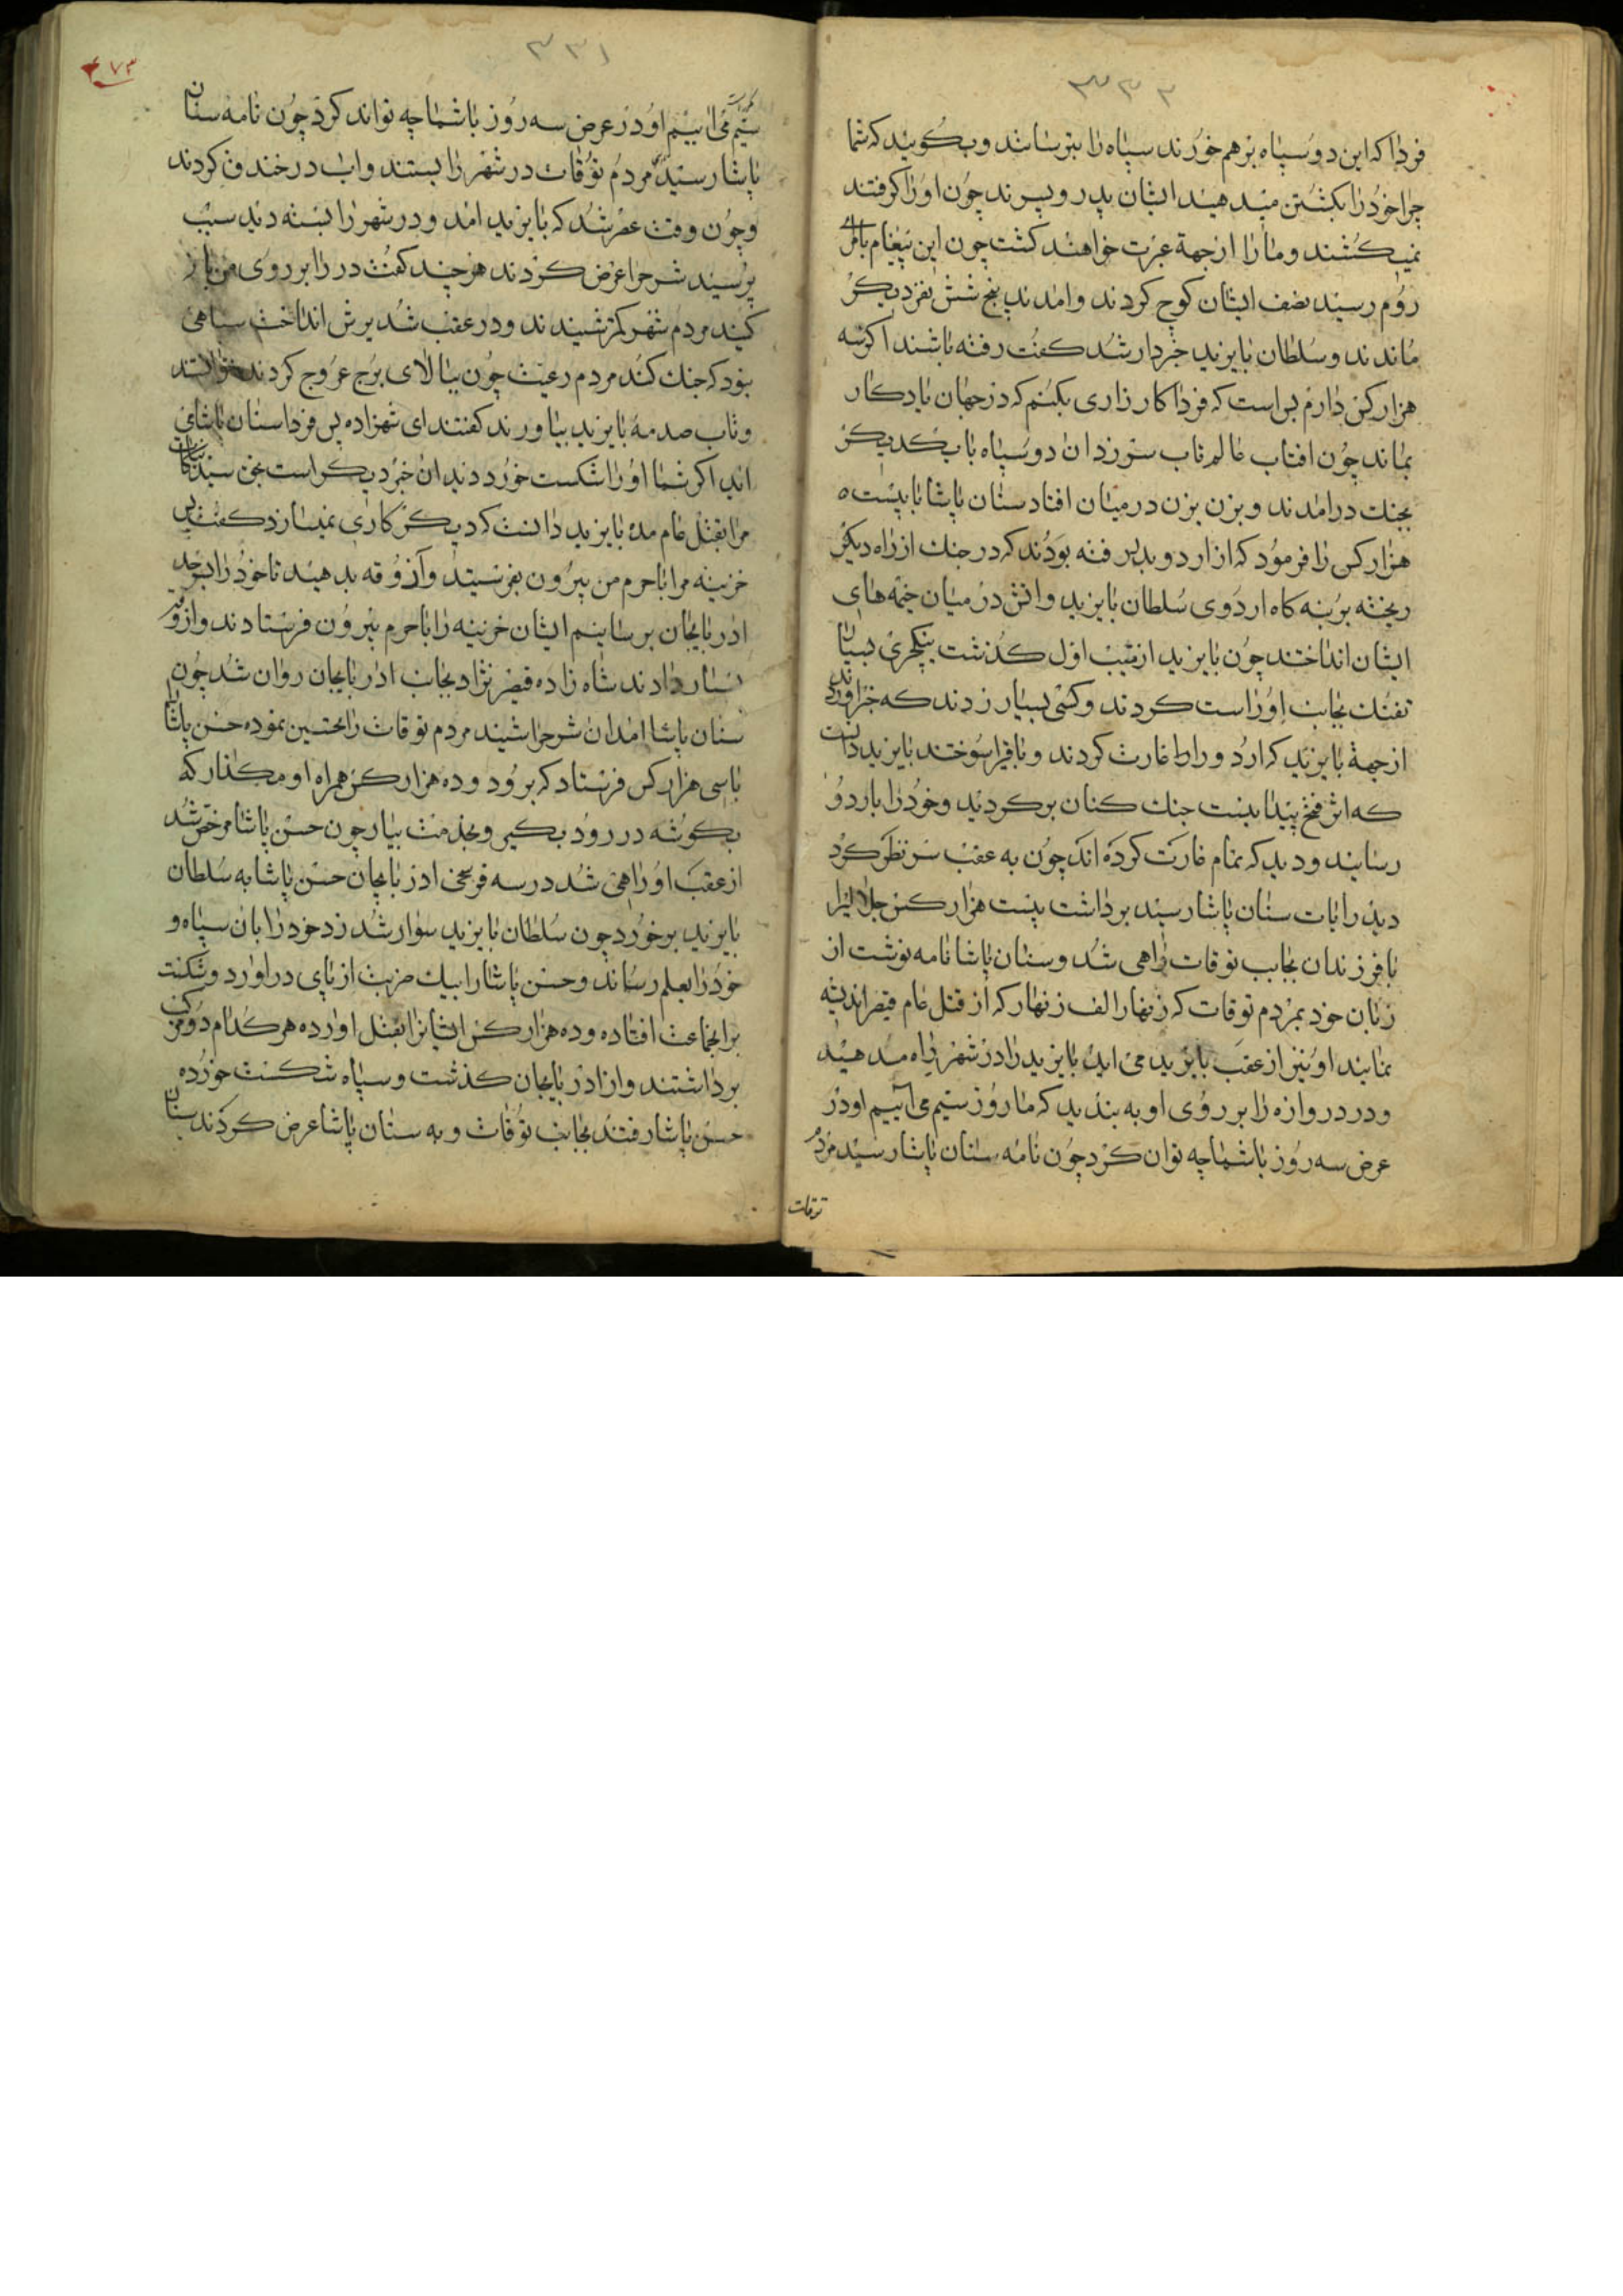 ۳۳۲
فردا که این دو سپاه برهم خورند سپاه را بترسانند و بگویند که شما
چرا خود را بکشتن میدهید ایشان پدر و پسرند چون او را گرفتند
نمیکشند و ما را از جهة عبرت خواهند کشت چون این پیغام بامرای
روم رسید نصف ایشان کوچ کردند و امدند پنج شش نفر دیگر
ماندند و سلطان بایزید خبردار شد گفت رفته باشند اگر سه
هزار کس دارم بس است که فردا کارزاری بکنم که در جهان یادگار
بماند چون افتاب عالم تاب سر زد ان دو سپاه با یکدیگر
بجنگ درامدند و بزن بزن در میان افتاد سنان پاشا با بیست
هزار کس را فرموده که از اردو بدر رفته بودند که در جنگ از راه دیگر
ریخته بر بنه کاه اردوی سلطان بایزید و اتش در میان خیمه های
ایشان انداختند چون بایزید از تیب اول گذشت ینکچری بسیار
تفنگ بجانب او راست کردند و کسی بسیار زدند که خبر اوردند
از جهة بایزید که اردو را غارت کردند و باقی را سوختند بایزید دانست
که اثر فتح پیدا نیست جنگ کنان برگردید و خود را باردو
رسانید و دید که تمام غارت کرده اند چون به عقب سر نظر کرد
دید رایات سنان پاشا رسید برداشت بیست هزار کس جلالیرا
با فرزندان بجانب توقات راهی شد و سنان پاشا نامه نوشت از
زبان خود بمردم توقات که زنهار الف زنهار که از قتل عام قیصر اندیشه
نمایند او نیز از عقب بایزید می اید بایزید را در شهر راه مدهید
و در دروازه را بر روی او به بندید که ما روز سیم می اییم او در
عرض سه روز باشما چه توان کرد چون نامه سنان پاشا رسید مردم
توقات
۳۳۱
۴۷۳
سیم می اییم او در عرض سه روز باشما چه تواند کرد چون نامه سنان
پاشا رسید مردم توقات در شهر را بستند و اب در خندق کردند
و چون وقت عصر شد که بایزید امد و در شهر را بسته دید سبب
پرسید شرح را عرض کردند هرچند گفت در را بر روی من باز
کنید مردم شهر کمتر شنیدند و در عقب شد یرش انداخت سپاهی
نبود که جنگ کند مردم رعیت چون ببالای برج عروج کردند نتوانستند
و تاب صدمه بایزید بیاورند گفتند ای شهزاده پس فردا سنان پاشا می
اید اگر شما او را شکست خورد دید ان خبر دیگر است
مرا بقتل عام مده بایزید دانست که دیگر کاری نمیسازد گفت پس
خزینه مرا با حرم من بیرون بفرستید و آزوقه بدهید تا خود را بسرحد
اذربایجان برسانیم ایشان خزینه را با حرم بیرون فرستادند و ازوقه
بسیار دادند شاه زاده قیصر نژاد بجانب اذربایجان روان شد چون
سنان پاشا امد ان شرح را شنید مردم توقات را تحسین نموده حسن پاشا
باسی هزار کس فرستاد که برود و ده هزار کس همراه او مگذار که
بگوشه در رود بگیر و بخدمت بیار چون حسن پاشا مرخص شد
از عقب او راهی شد در سه فرسخی اذربایجان حسن پاشا به سلطان
بایزید برخورد چون سلطان بایزید سوار شد زد خود را بان سپاه و
خود را بعلم رساند و حسن پاشا را بیک ضربت از پای دراورد و شکست
بر انجماعت افتاده و ده هزار کس ایشانرا بقتل اورده هر کدام دو سر
برداشتند و از اذربایجان گذشت و سپاه شکست خورده
حسن پاشا رفتند بجانب توقات و به سنان پاشا عرض کردند سنان